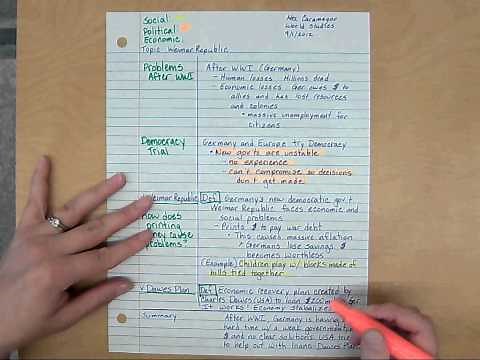 Social
Political
Economic
Mrs. Caramagor
World Studies
9/1/2012
Topic Weimar Republic
Problems
After WWI
After WWI (Germany)
- Human losses. Millions dead
- Economic losses. Ger owes $ to
allies and has lost resources
and colonies
• massive unemployment for
citizens
Democracy
Trial
Germany and Europe try Democracy
• New gov'ts are unstable
- no experience
- can't compromise so decisions
don't get made
Weimar Republic
Def Germany's new democratic gov't
Weimar Republic faces economic and
social problems
How does
printing
cause
problems?
- Prints $ to pay war debt
• This causes massive inflation
> Germans lose savings $
becomes worthless
(Example) Children play w/ blocks made of
bills tied together
Dawes Plan
Def Economic recovery plan created by
Charles Dawes (USA) to loan
It works! Economy stabilizes
Summary
After WWI, Germany is having a
hard time w/ a weak government
$ and no clear solutions. USA tries
to help out with loans Dawes Plan